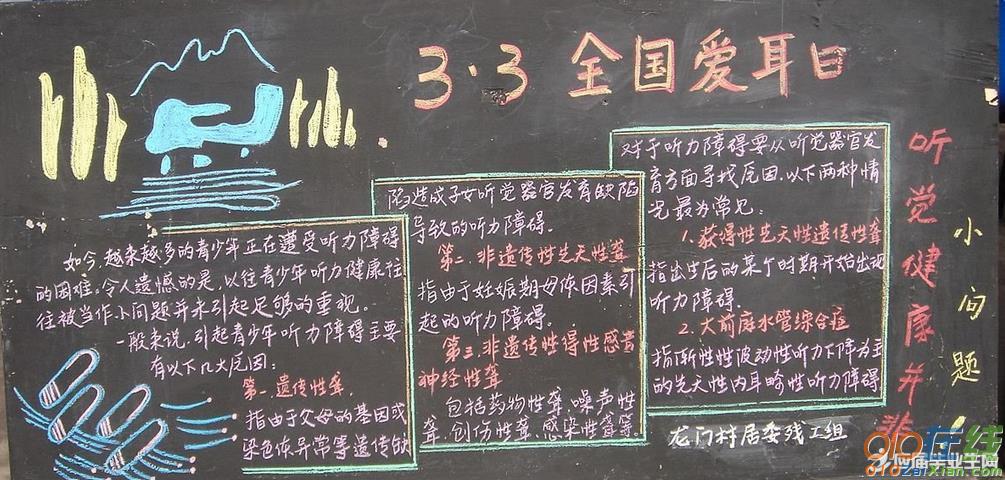 3·3 全国爱耳日
如今,越来越多的青少年正在遭受听力障碍
的困难。令人遗憾的是,以往青少年听力健康往
往被当作小问题并未引起足够的重视。
一般来说,引起青少年听力障碍主要
有以下几大原因:
第一.遗传性聋.
指由于父母的基因或
染色体异常等遗传缺
陷造成子女听觉器官发育缺陷
导致的听力障碍。
第二.非遗传性先天性聋
指由于妊娠期母体因素引
起的听力障碍。
第三.非遗传性得性感音
神经性聋
包括药物性聋、噪声性
聋、创伤性聋、感染性聋等.
对于听力障碍要从听觉器官发
育方面寻找原因.以下两种情
况最为常见:
1.获得性先天性遗传性聋
指出生后的某个时期开始出现
听力障碍.
2.大前庭水管综合症
指渐性性波动性听力下降为主
的先天性内耳畸性听力障碍
龙门村居委残工组
听觉健康并非
小问题!
910在线
910zaixian.com
应届毕业生网